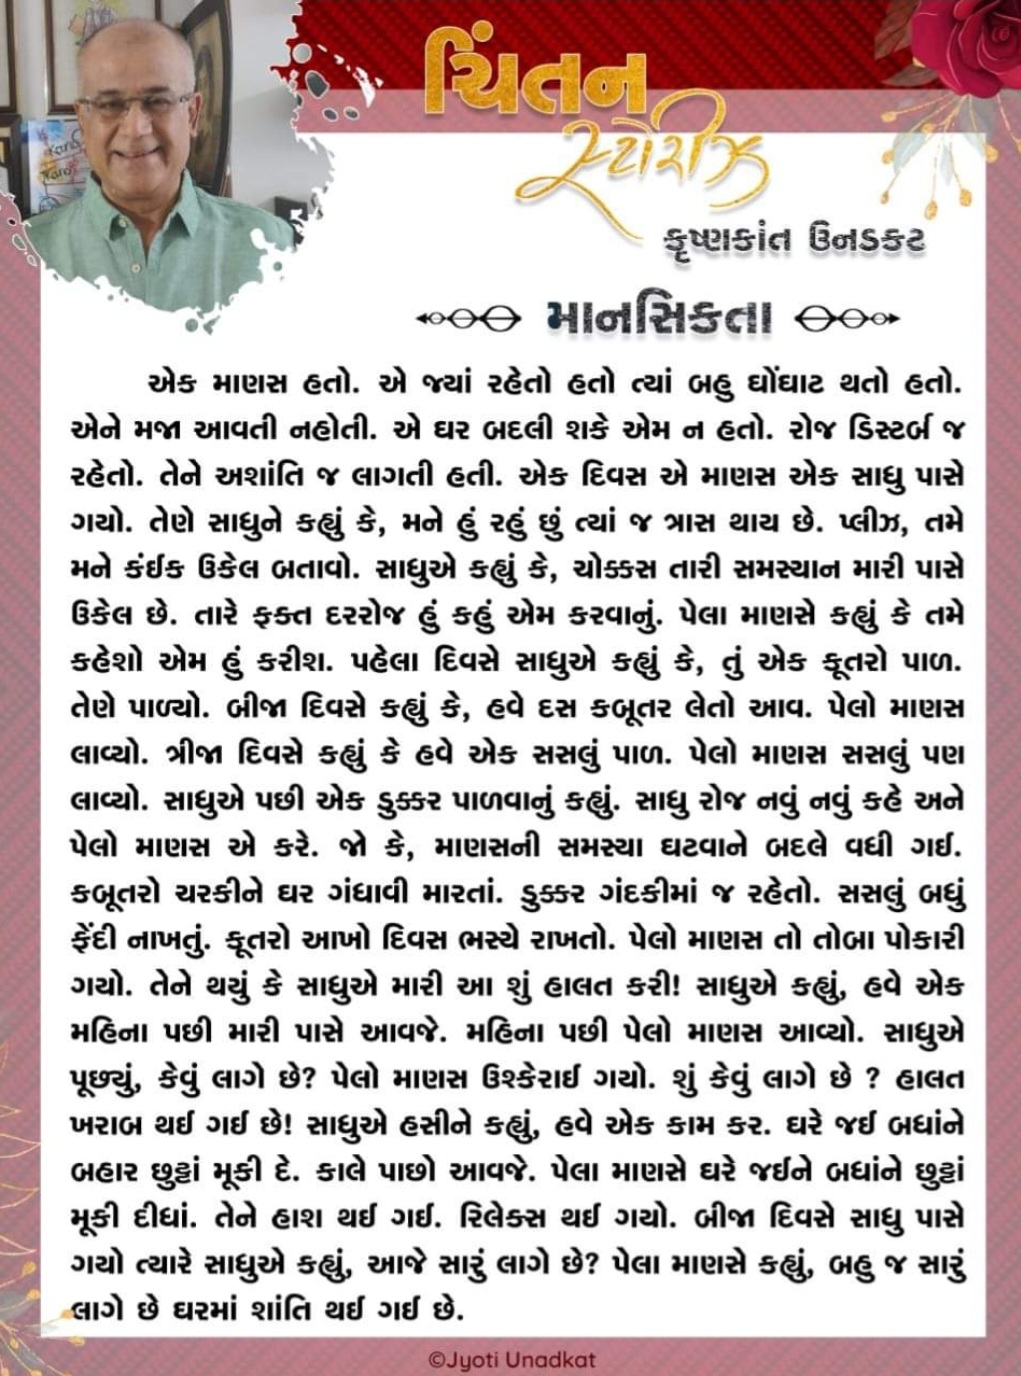 ચિંતન
સ્ટોરીઝ
કૃષ્ણકાંત ઉનડકટ
માનસિકતા
એક માણસ હતો. એ જ્યાં રહેતો હતો ત્યાં બહુ ઘોંઘાટ થતો હતો.
એને મજા આવતી નહોતી. એ ઘર બદલી શકે એમ ન હતો. રોજ ડિસ્ટર્બ જ
રહેતો. તેને અશાંતિ જ લાગતી હતી. એક દિવસ એ માણસ એક સાધુ પાસે
ગયો. તેણે સાધુને કહ્યું કે, મને હું રહું છું ત્યાં જ ત્રાસ થાય છે. પ્લીઝ, તમે
મને કંઈક ઉકેલ બતાવો. સાધુએ કહ્યું કે, ચોક્કસ તારી સમસ્યાન મારી પાસે
ઉકેલ છે. તારે ફક્ત દરરોજ હું કહું એમ કરવાનું. પેલા માણસે કહ્યું કે તમે
કહેશો એમ હું કરીશ. પહેલા દિવસે સાધુએ કહ્યું કે, તું એક કૂતરો પાળ.
તેણે પાળ્યો. બીજા દિવસે કહ્યું કે, હવે દસ કબૂતર લેતો આવ. પેલો માણસ
લાવ્યો. ત્રીજા દિવસે કહ્યું કે હવે એક સસલું પાળ. પેલો માણસ સસલું પણ
લાવ્યો. સાધુએ પછી એક ડુક્કર પાળવાનું કહ્યું. સાધુ રોજ નવું નવું કહે અને
પેલો માણસ એ કરે. જો કે, માણસની સમસ્યા ઘટવાને બદલે વધી ગઈ.
કબૂતરો ચરકીને ઘર ગંધાવી મારતાં. ડુક્કર ગંદકીમાં જ રહેતો. સસલું બધું
ફેંદી નાખતું. કૂતરો આખો દિવસ ભસ્યે રાખતો. પેલો માણસ તો તોબા પોકારી
ગયો. તેને થયું કે સાધુએ મારી આ શું હાલત કરી! સાધુએ કહ્યું, હવે એક
મહિના પછી મારી પાસે આવજે. મહિના પછી પેલો માણસ આવ્યો. સાધુએ
પૂછ્યું, કેવું લાગે છે? પેલો માણસ ઉશ્કેરાઈ ગયો. શું કેવું લાગે છે ? હાલત
ખરાબ થઈ ગઈ છે! સાધુએ હસીને કહ્યું, હવે એક કામ કર. ઘરે જઈ બધાંને
બહાર છુટ્ટાં મૂકી દે. કાલે પાછો આવજે. પેલા માણસે ઘરે જઈને બધાંને છુટ્ટાં
મૂકી દીધાં. તેને હાશ થઈ ગઈ. રિલેક્સ થઈ ગયો. બીજા દિવસે સાધુ પાસે
ગયો ત્યારે સાધુએ કહ્યું, આજે સારું લાગે છે? પેલા માણસે કહ્યું, બહુ જ સારું
લાગે છે ઘરમાં શાંતિ થઈ ગઈ છે.
©Jyoti Unadkat